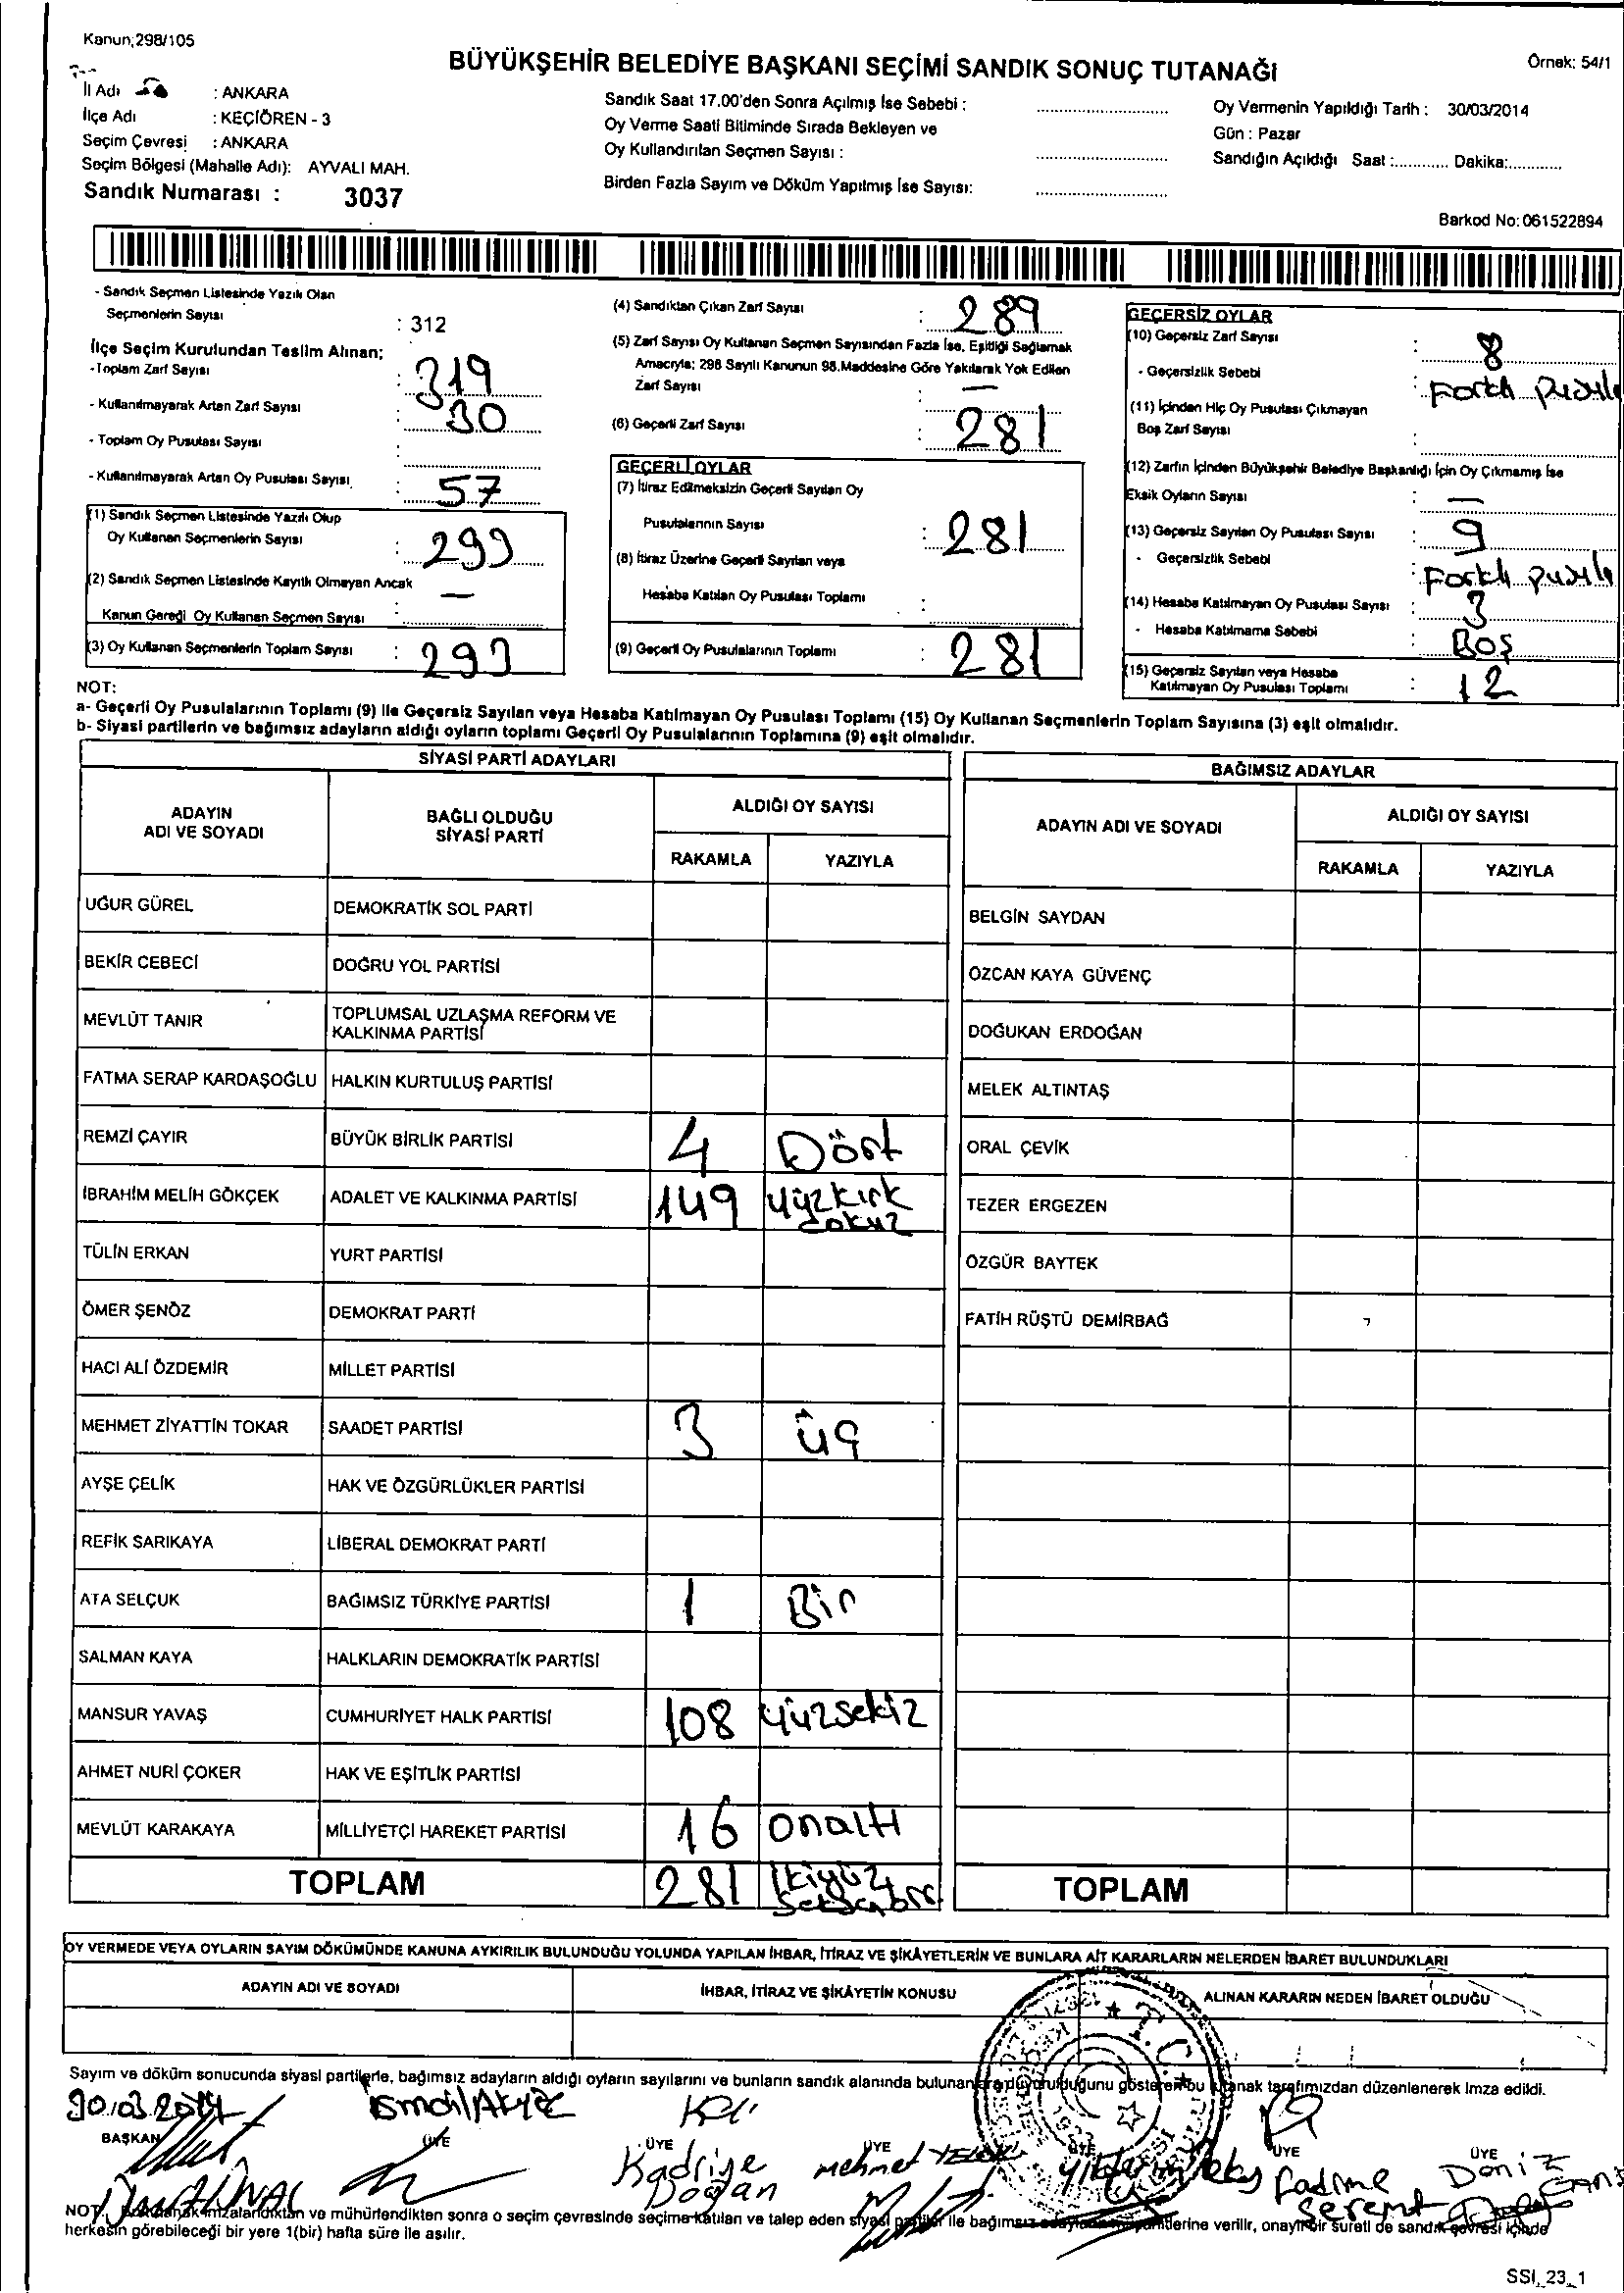 Kanun;298/105
BÜYÜKŞEHİR BELEDİYE BAŞKANI SEÇİMİ SANDIK SONUÇ TUTANAĞI
Örnek: 54/1
İl Adı : ANKARA
İlçe Adı : KEÇİÖREN - 3
Seçim Çevresi : ANKARA
Seçim Bölgesi (Mahalle Adı): AYVALI MAH.
Sandık Numarası : 3037
Sandık Saat 17.00'den Sonra Açılmış İse Sebebi :
Oy Verme Saati Bitiminde Sırada Bekleyen ve
Oy Kullandırılan Seçmen Sayısı :
Birden Fazla Sayım ve Döküm Yapılmış İse Sayısı:
Oy Vermenin Yapıldığı Tarih : 30/03/2014
Gün : Pazar
Sandığın Açıldığı Saat :............ Dakika:............
Barkod No: 061522894
- Sandık Seçmen Listesinde Yazılı Olan
Seçmenlerin Sayısı : 312
İlçe Seçim Kurulundan Teslim Alınan;
-Toplam Zarf Sayısı : 319
- Kullanılmayarak Artan Zarf Sayısı : 30
- Toplam Oy Pusulası Sayısı :
- Kullanılmayarak Artan Oy Pusulası Sayısı : 57
(1) Sandık Seçmen Listesinde Yazılı Olup
Oy Kullanan Seçmenlerin Sayısı : 293
(2) Sandık Seçmen Listesinde Kayıtlı Olmayan Ancak
Kanun Gereği Oy Kullanan Seçmen Sayısı : —
(3) Oy Kullanan Seçmenlerin Toplam Sayısı : 293
(4) Sandıktan Çıkan Zarf Sayısı : 289
(5) Zarf Sayısı Oy Kullanan Seçmen Sayısından Fazla İse, Eşitliği Sağlamak
Amacıyla; 298 Sayılı Kanunun 98.Maddesine Göre Yakılarak Yok Edilen
Zarf Sayısı : —
(6) Geçerli Zarf Sayısı : 281
GEÇERLİ OYLAR
(7) İtiraz Edilmeksizin Geçerli Sayılan Oy
Pusulalarının Sayısı : 281
(8) İtiraz Üzerine Geçerli Sayılan veya
Hesaba Katılan Oy Pusulası Toplamı :
(9) Geçerli Oy Pusulalarının Toplamı : 281
GEÇERSİZ OYLAR
(10) Geçersiz Zarf Sayısı : 8
- Geçersizlik Sebebi : Farklı pusula
(11) İçinden Hiç Oy Pusulası Çıkmayan
Boş Zarf Sayısı :
(12) Zarfın İçinden Büyükşehir Belediye Başkanlığı İçin Oy Çıkmamış İse
Eksik Oyların Sayısı : —
(13) Geçersiz Sayılan Oy Pusulası Sayısı : 9
- Geçersizlik Sebebi : Farklı pusula
(14) Hesaba Katılmayan Oy Pusulası Sayısı : 3
- Hesaba Katılmama Sebebi : Boş
(15) Geçersiz Sayılan veya Hesaba
Katılmayan Oy Pusulası Toplamı : 12
NOT:
a- Geçerli Oy Pusulalarının Toplamı (9) ile Geçersiz Sayılan veya Hesaba Katılmayan Oy Pusulası Toplamı (15) Oy Kullanan Seçmenlerin Toplam Sayısına (3) eşit olmalıdır.
b- Siyasi partilerin ve bağımsız adayların aldığı oyların toplamı Geçerli Oy Pusulalarının Toplamına (9) eşit olmalıdır.
SİYASİ PARTİ ADAYLARI
ADAYIN ADI VE SOYADI BAĞLI OLDUĞU SİYASİ PARTİ ALDIĞI OY SAYISI
RAKAMLA YAZIYLA
UĞUR GÜREL DEMOKRATİK SOL PARTİ
BEKİR CEBECİ DOĞRU YOL PARTİSİ
MEVLÜT TANIR TOPLUMSAL UZLAŞMA REFORM VE KALKINMA PARTİSİ
FATMA SERAP KARDAŞOĞLU HALKIN KURTULUŞ PARTİSİ
REMZİ ÇAYIR BÜYÜK BİRLİK PARTİSİ 4 Dört
İBRAHİM MELİH GÖKÇEK ADALET VE KALKINMA PARTİSİ 149 Yüzkırk dokuz
TÜLİN ERKAN YURT PARTİSİ
ÖMER ŞENÖZ DEMOKRAT PARTİ
HACI ALİ ÖZDEMİR MİLLET PARTİSİ
MEHMET ZİYATTİN TOKAR SAADET PARTİSİ 3 üç
AYŞE ÇELİK HAK VE ÖZGÜRLÜKLER PARTİSİ
REFİK SARIKAYA LİBERAL DEMOKRAT PARTİ
ATA SELÇUK BAĞIMSIZ TÜRKİYE PARTİSİ 1 Bir
SALMAN KAYA HALKLARIN DEMOKRATİK PARTİSİ
MANSUR YAVAŞ CUMHURİYET HALK PARTİSİ 108 Yüzsekiz
AHMET NURİ ÇOKER HAK VE EŞİTLİK PARTİSİ
MEVLÜT KARAKAYA MİLLİYETÇİ HAREKET PARTİSİ 16 onaltı
TOPLAM 281 İkiyüz seksenbir
BAĞIMSIZ ADAYLAR
ADAYIN ADI VE SOYADI ALDIĞI OY SAYISI
RAKAMLA YAZIYLA
BELGİN SAYDAN
ÖZCAN KAYA GÜVENÇ
DOĞUKAN ERDOĞAN
MELEK ALTINTAŞ
ORAL ÇEVİK
TEZER ERGEZEN
ÖZGÜR BAYTEK
FATİH RÜŞTÜ DEMİRBAĞ
TOPLAM
OY VERMEDE VEYA OYLARIN SAYIM DÖKÜMÜNDE KANUNA AYKIRILIK BULUNDUĞU YOLUNDA YAPILAN İHBAR, İTİRAZ VE ŞİKÂYETLERİN VE BUNLARA AİT KARARLARIN NELERDEN İBARET BULUNDUKLARI
ADAYIN ADI VE SOYADI İHBAR, İTİRAZ VE ŞİKÂYETİN KONUSU ALINAN KARARIN NEDEN İBARET OLDUĞU
T.C.
Sayım ve döküm sonucunda siyasi partilerle, bağımsız adayların aldığı oyların sayılarını ve bunların sandık alanında bulunanlara duyurulduğunu gösteren bu tutanak tarafımızdan düzenlenerek imza edildi.
30.03.2014 İsmail
BAŞKAN ÜYE ÜYE ÜYE ÜYE ÜYE ÜYE
Kadriye Doğan Mehmet Fadime Deniz
NOT: imzalandıktan ve mühürlendikten sonra o seçim çevresinde seçime katılan ve talep eden siyasi partiler ile bağımsız verilir, onaylı bir sureti de sandık çevresi içinde
herkesin görebileceği bir yere 1(bir) hafta süre ile asılır.
SSI_23_1